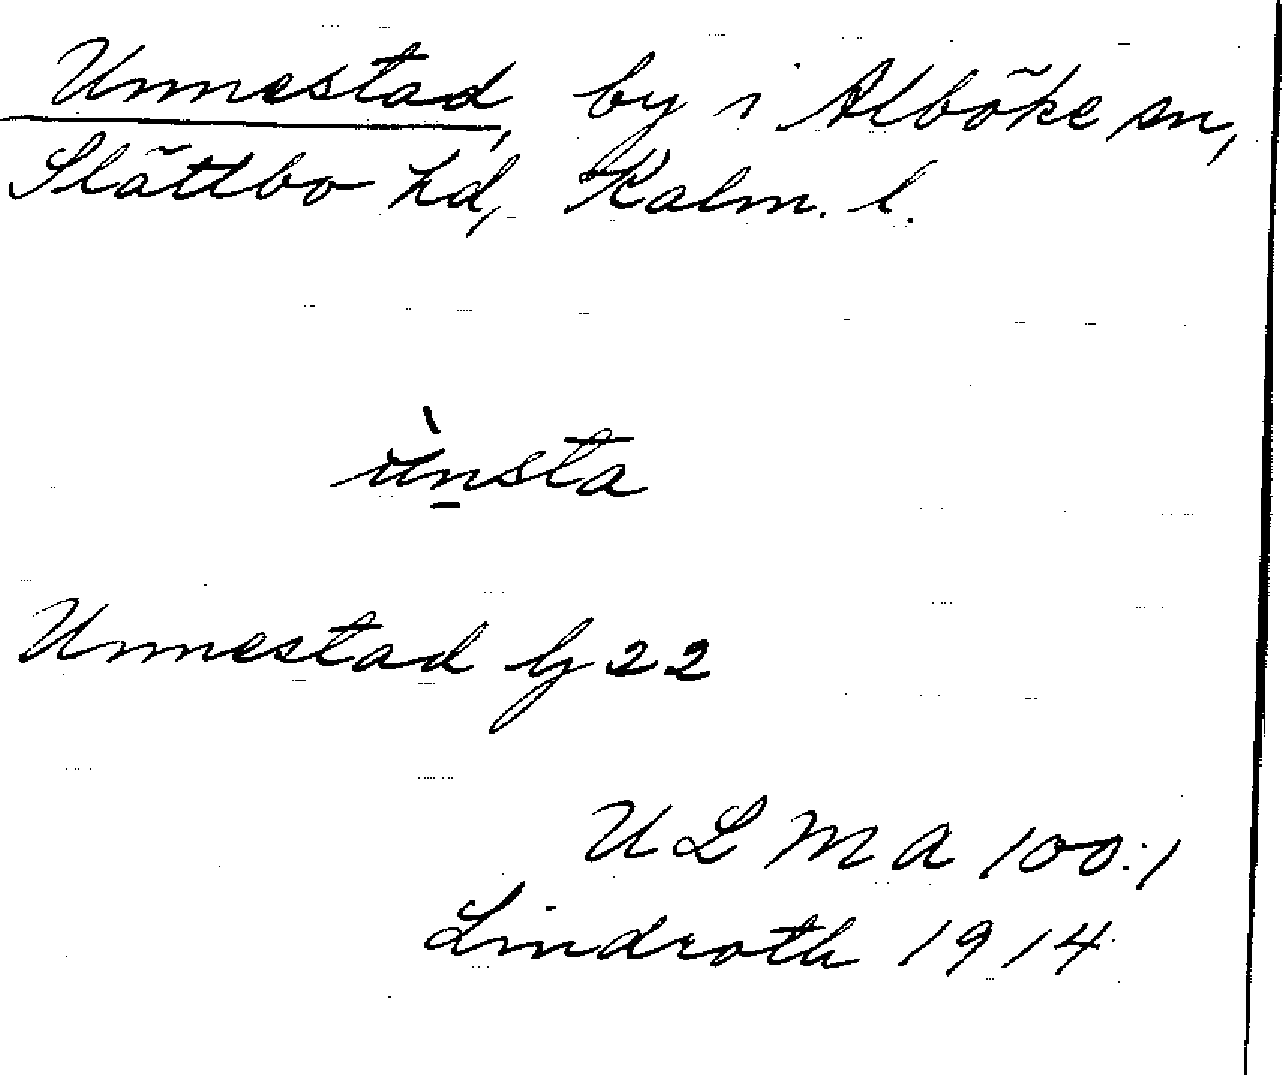 Unnestad, by i Alböke sn,
Slättbo hd, Kalm. l.
ùn̲sta
Unnestad by 22
ULMA 100:1
Lindroth 1914